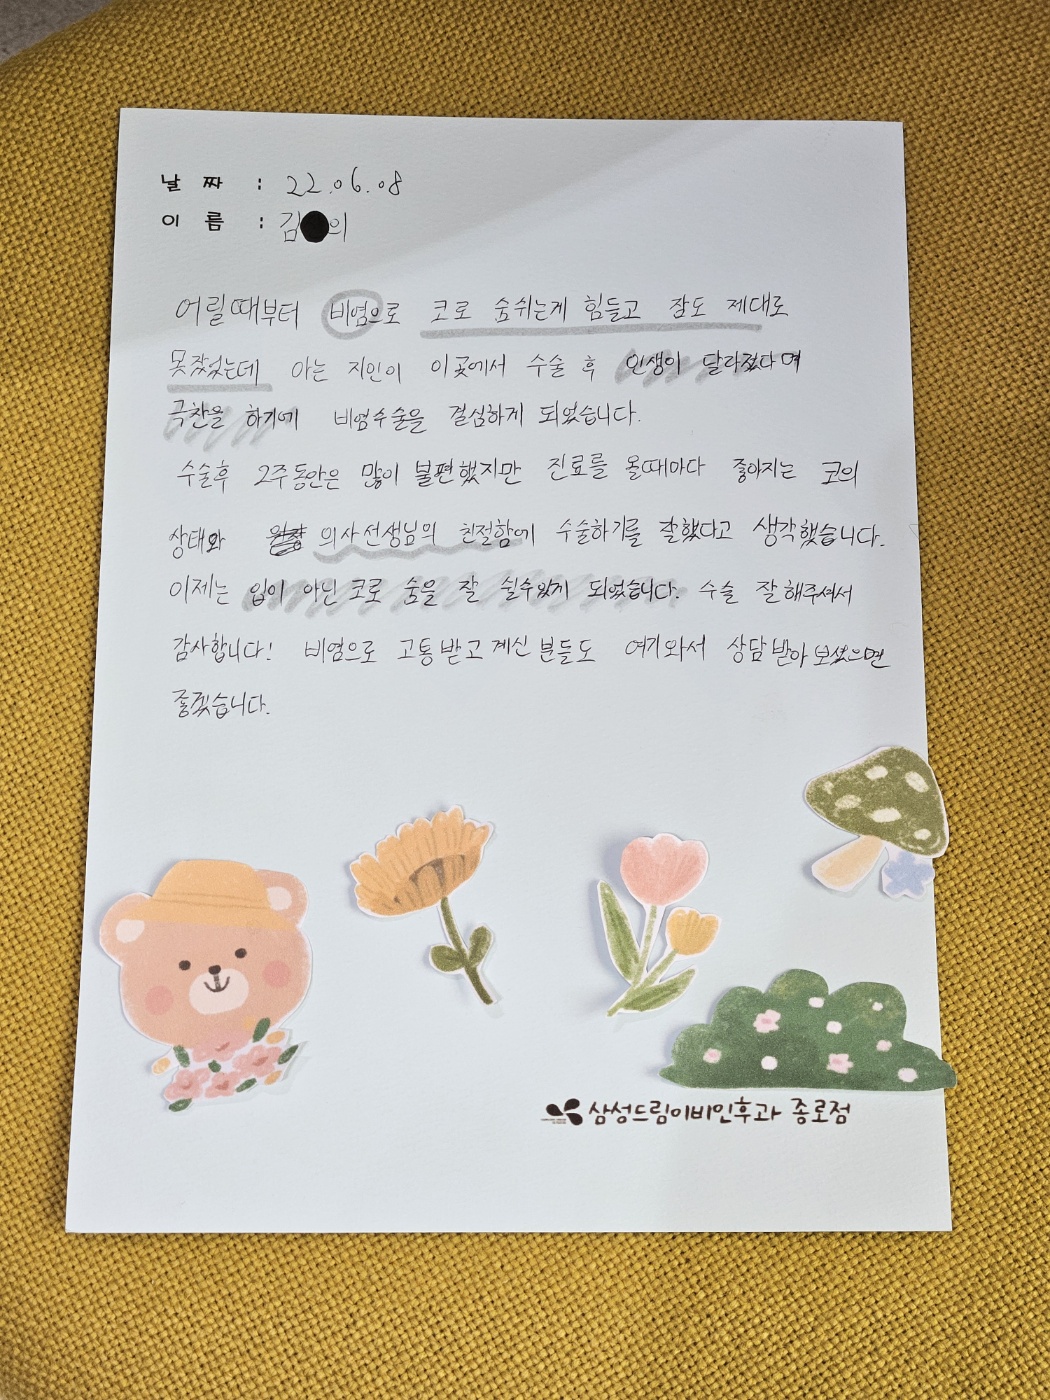 날 짜 : 22.06.08
이 름 : 김●의
어릴때부터 비염으로 코로 숨쉬는게 힘들고 잠도 제대로
못잤었는데 아는 지인이 이곳에서 수술 후 인생이 달라졌다며
극찬을 하기에 비염수술을 결심하게 되었습니다.
수술후 2주동안은 많이 불편했지만 진료를 올때마다 좋아지는 코의
상태와 의사선생님의 친절함에 수술하기를 잘했다고 생각했습니다.
이제는 입이 아닌 코로 숨을 잘 쉴수있게 되었습니다. 수술 잘해주셔서
감사합니다! 비염으로 고통받고계신 분들도 여기와서 상담받아보셨으면
좋겠습니다.
삼성드림이비인후과 종로점